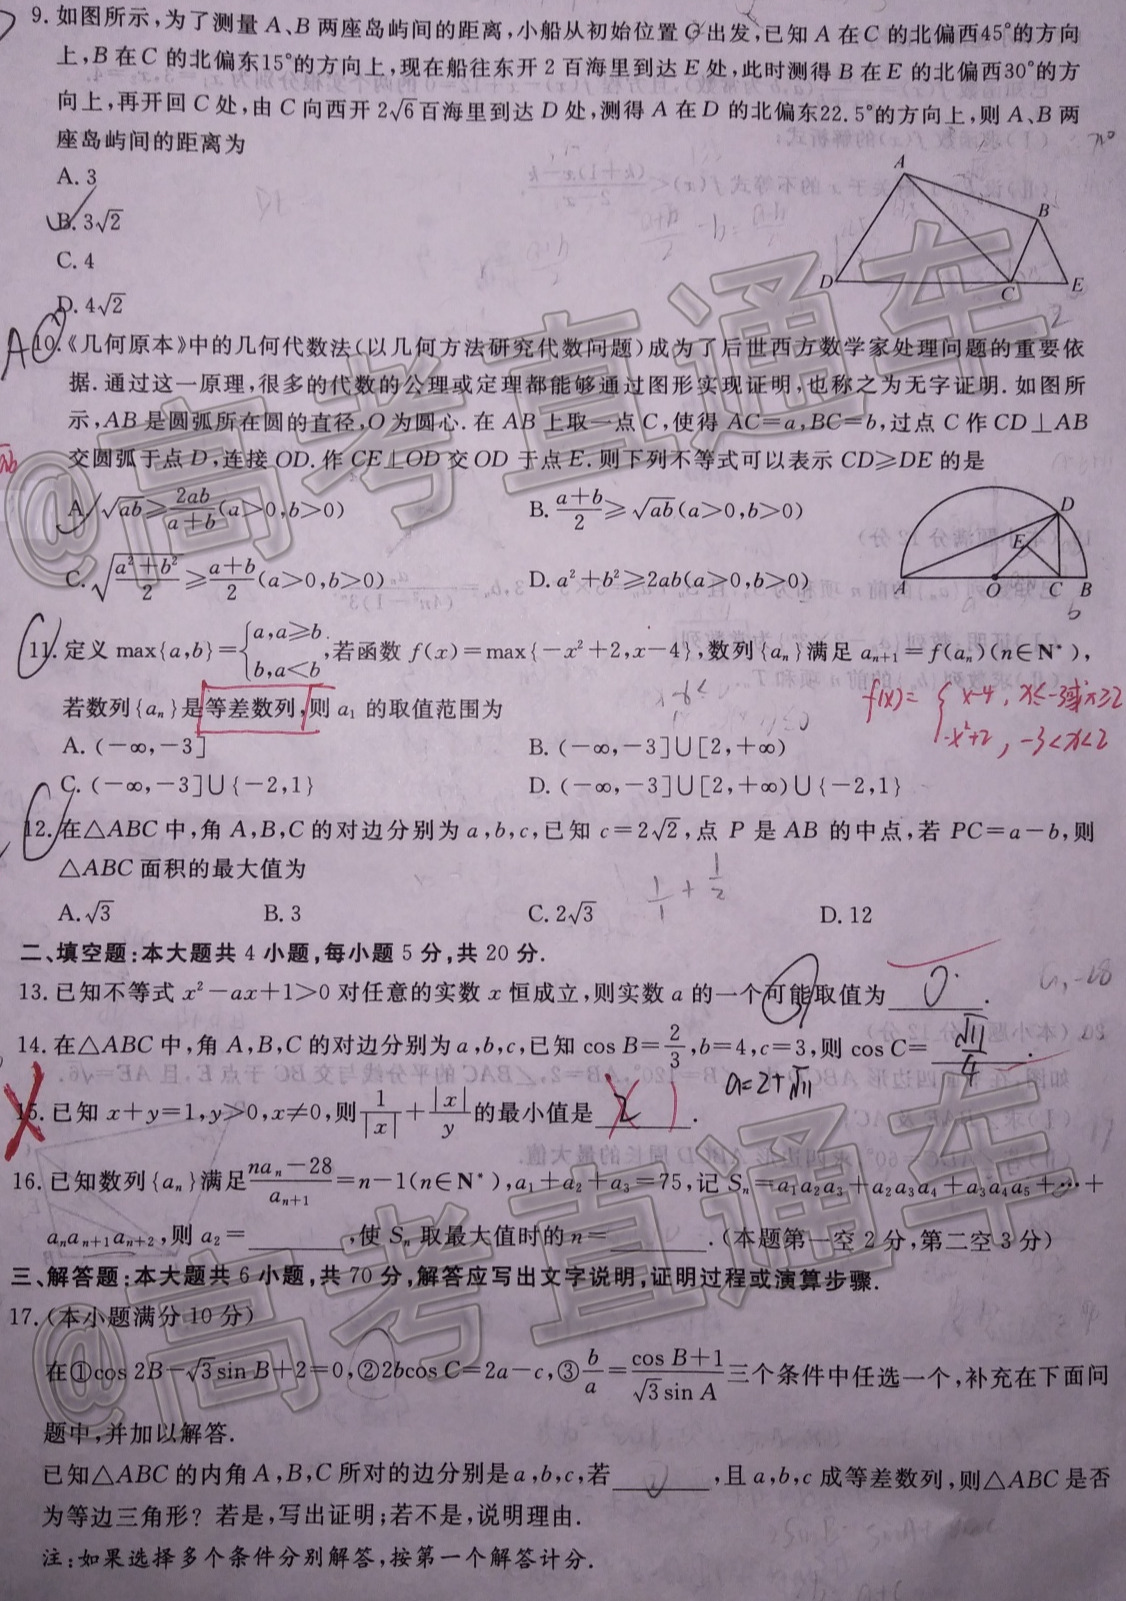 9.如图所示,为了测量A、B两座岛屿间的距离,小船从初始位置C出发,已知A在C的北偏西45°的方向
上,B在C的北偏东15°的方向上,现在船往东开2百海里到达E处,此时测得B在E的北偏西30°的方
向上,再开回C处,由C向西开2√6百海里到达D处,测得A在D的北偏东22.5°的方向上,则A、B两
座岛屿间的距离为
A.3
B.3√2
C.4
D.4√2
A
B
D
C
E
2
A
10.《几何原本》中的几何代数法(以几何方法研究代数问题)成为了后世西方数学家处理问题的重要依
据.通过这一原理,很多的代数的公理或定理都能够通过图形实现证明,也称之为无字证明.如图所
示,AB是圆弧所在圆的直径,O为圆心.在AB上取一点C,使得AC=a,BC=b,过点C作CD⊥AB
交圆弧于点D,连接OD.作CE⊥OD交OD于点E.则下列不等式可以表示CD≥DE的是
A.√ab≥2ab/(a+b)(a>0,b>0)
B.(a+b)/2≥√ab(a>0,b>0)
C.√((a²+b²)/2)≥(a+b)/2(a>0,b>0)
D.a²+b²≥2ab(a>0,b>0)
D
E
A
O
C
B
b
11.定义max{a,b}={a,a≥b. b,a<b,若函数f(x)=max{-x²+2,x-4},数列{aₙ}满足aₙ₊₁=f(aₙ)(n∈N*),
若数列{aₙ}是等差数列,则a₁的取值范围为
f(x)={x-4, x≤-3或x≥2
-x²+2, -3<x<2
A.(-∞,-3]
B.(-∞,-3]∪[2,+∞)
C.(-∞,-3]∪{-2,1}
D.(-∞,-3]∪[2,+∞)∪{-2,1}
12.在△ABC中,角A,B,C的对边分别为a,b,c,已知c=2√2,点P是AB的中点,若PC=a-b,则
△ABC面积的最大值为
1/1+1/2
A.√3
B.3
C.2√3
D.12
二、填空题:本大题共4小题,每小题5分,共20分.
13.已知不等式x²-ax+1>0对任意的实数x恒成立,则实数a的一个可能取值为 0 .
14.在△ABC中,角A,B,C的对边分别为a,b,c,已知cos B=2/3,b=4,c=3,则cos C= √11/4 .
a=2+√11
15.已知x+y=1,y>0,x≠0,则1/|x|+|x|/y的最小值是 2 .
16.已知数列{aₙ}满足(naₙ-28)/aₙ₊₁=n-1(n∈N*),a₁+a₂+a₃=75,记Sₙ=a₁a₂a₃+a₂a₃a₄+a₃a₄a₅+…+
aₙaₙ₊₁aₙ₊₂,则a₂=____,使Sₙ取最大值时的n=____.(本题第一空2分,第二空3分)
三、解答题:本大题共6小题,共70分,解答应写出文字说明,证明过程或演算步骤.
17.(本小题满分10分)
在①cos 2B-√3sin B+2=0,②2bcos C=2a-c,③b/a=(cos B+1)/(√3sin A)三个条件中任选一个,补充在下面问
题中,并加以解答.
已知△ABC的内角A,B,C所对的边分别是a,b,c,若 ② ,且a,b,c成等差数列,则△ABC是否
为等边三角形?若是,写出证明;若不是,说明理由.
注:如果选择多个条件分别解答,按第一个解答计分.
@高考直通车
@高考直通车